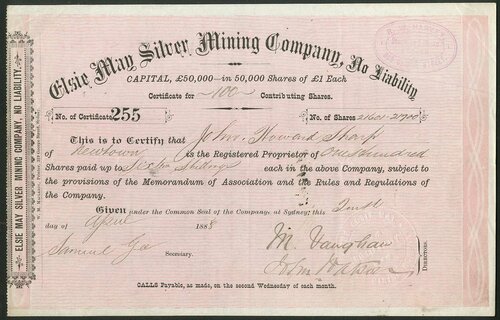 Elsie May Silver Mining Company, No Liability
CAPITAL, £50,000—in 50,000 Shares of £1 Each
Certificate for 100 Contributing Shares.
No. of Certificate 255
No. of Shares 21601-21700
This is to Certify that John Howard Sharp
of Newtown is the Registered Proprietor of One hundred
Shares paid up to Shillings each in the above Company, subject to
the provisions of the Memorandum of Association and the Rules and Regulations of
the Company.
Given under the Common Seal of the Company, at Sydney, this Tenth
day of April 1888
Samuel Secretary.
M. Vaughan
John Watson
DIRECTORS.
CALLS Payable, as made, on the second Wednesday of each month.
ELSIE MAY SILVER MINING COMPANY, NO LIABILITY.